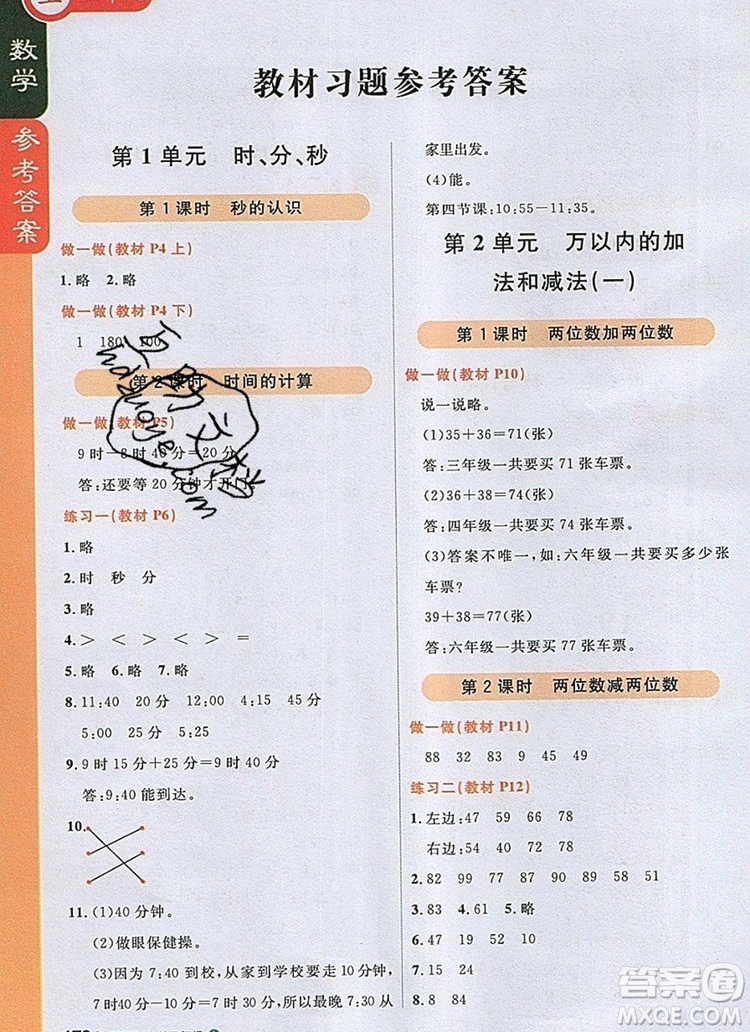 数学
参考答案
教材习题参考答案
第1单元 时、分、秒
第1课时 秒的认识
做一做(教材 P4 上)
1.略 2.略
做一做(教材 P4 下)
1 180
第2课时 时间的计算
做一做(教材 P5)
9时-8时40分=20分
答:还要等20分钟才开门。
练习一(教材 P6)
1.略
2.时 秒 分
3.略
4.> < > < > =
5.略 6.略 7.略
8.11:40 20分 12:00 4:15 45分
5:00 25分 5:25
9.9时15分+25分=9时40分
答:9:40能到达。
10.
11.(1)40分钟。
(2)做眼保健操。
(3)因为7:40到校,从家到学校要走10分钟,7:40向前推10分钟,所以最晚7:30从
家里出发。
(4)能。
第四节课:10:55—11:35。
第2单元 万以内的加
法和减法(一)
第1课时 两位数加两位数
做一做(教材 P10)
说一说略。
(1)35+36=71(张)
答:三年级一共要买71张车票。
(2)36+38=74(张)
答:四年级一共要买74张车票。
(3)答案不唯一,如:六年级一共要买多少张
车票?
39+38=77(张)
答:六年级一共要买77张车票。
第2课时 两位数减两位数
做一做(教材 P11)
88 32 83 9 45 49
练习二(教材 P12)
1.左边:47 59 66 78
右边:48 56 67 78
2.82 99 77 91 87 82 58 51
3.83 4.61 5.略
6.47 19 27 46 52 29
7.15 24
8.8 84
答案圈
MXQE.COM